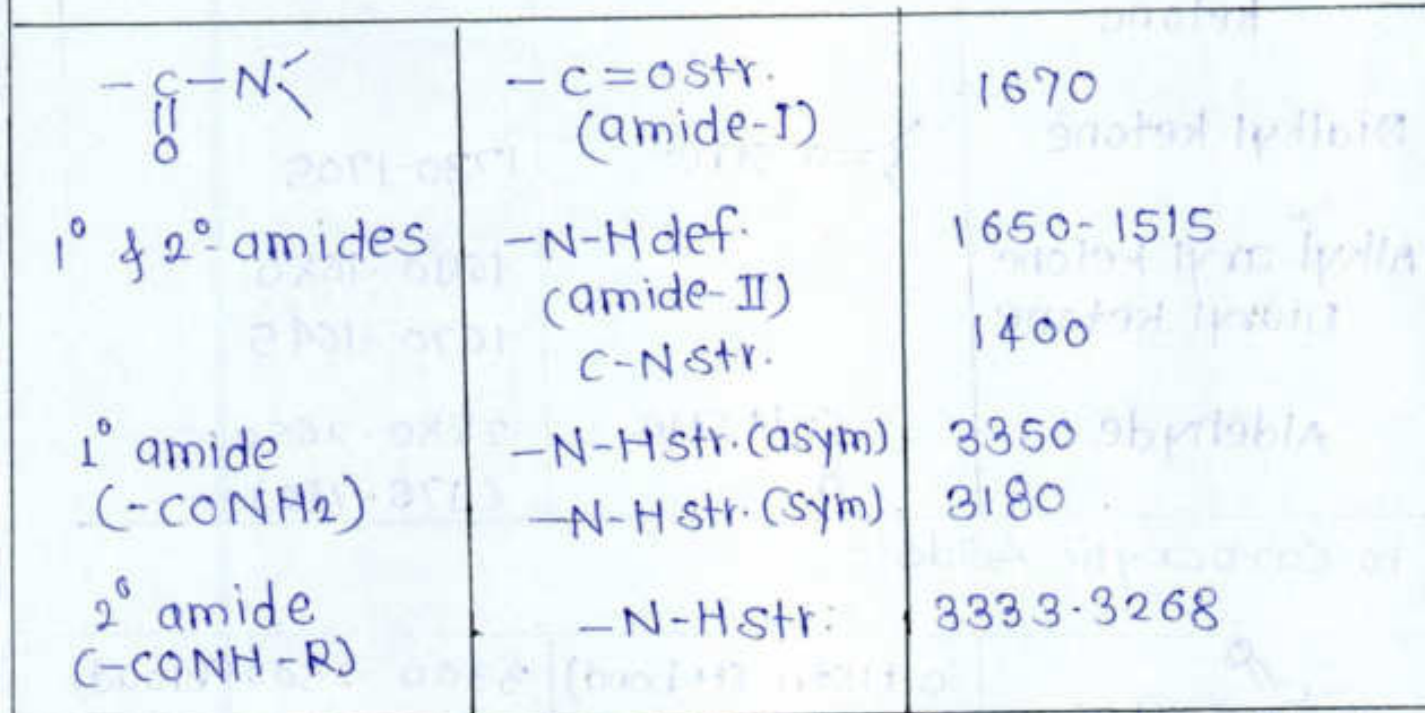 ketone
-C-N<
||
O
-C=O str.
(amide-I)
1670
1° & 2°-amides
-N-H def.
(amide-II)
1650-1515
C-N str.
1400
1° amide
(-CONH2)
-N-H str. (asym)
3350
-N-H str. (sym)
3180
2° amide
(-CONH-R)
-N-H str.
3333-3268
Dialkyl ketone
Aldehyde